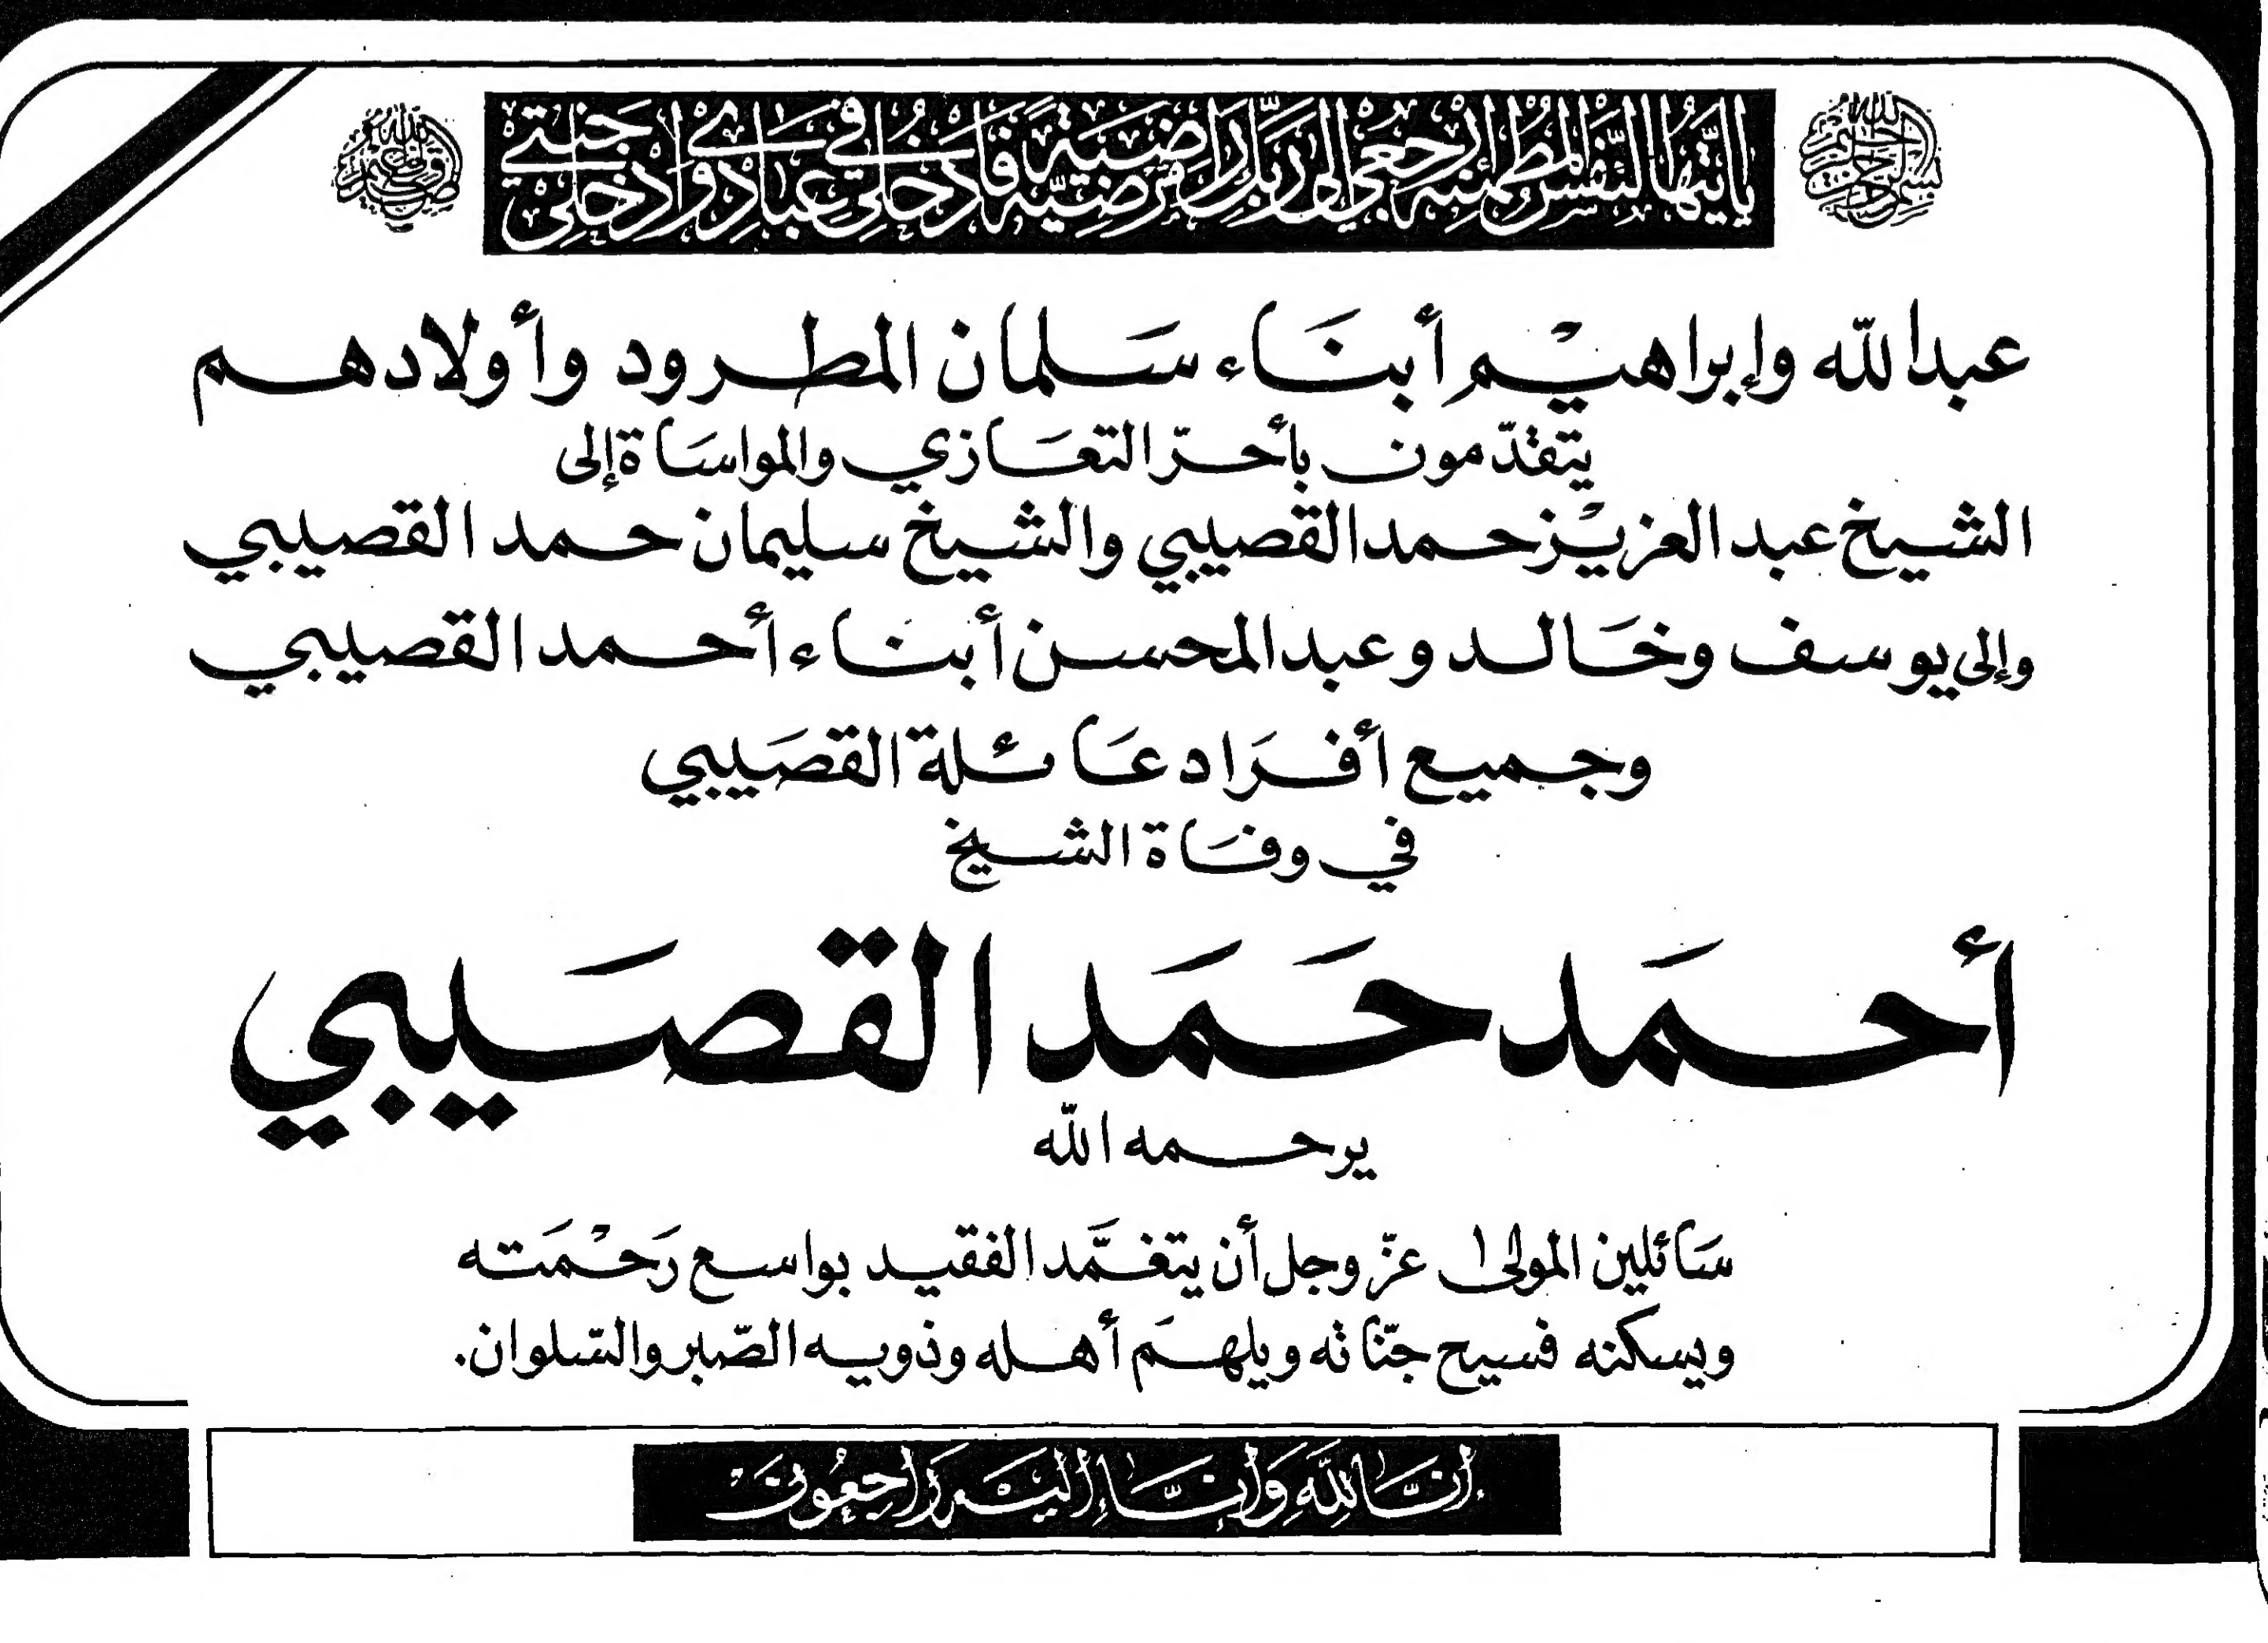 بسم الله الرحمن الرحيم
يا أيتها النفس المطمئنة ارجعي إلى ربك راضية مرضية فادخلي في عبادي وادخلي جنتي
صدق الله العظيم
عبدالله وإبراهيم أبناء سلمان المطرود وأولادهم
يتقدّمون بأحرّ التعازي والمواساة إلى
الشيخ عبد العزيز حمد القصيبي والشيخ سليمان حمد القصيبي
وإلى يوسف وخالد وعبد المحسن أبناء أحمد القصيبي
وجميع أفراد عائلة القصيبي
في وفاة الشيخ
أحمَد حَمَد القصَيبي
يرحمه الله
سَائلين المولى عزّ وجل أن يتغمَّد الفقيد بواسع رَحْمَته
ويسكنه فسيح جنّاته ويلهم أهله وذويه الصّبر والسّلوان.
إنَّا لله وَإنَّا إليه رَاجعُونَ